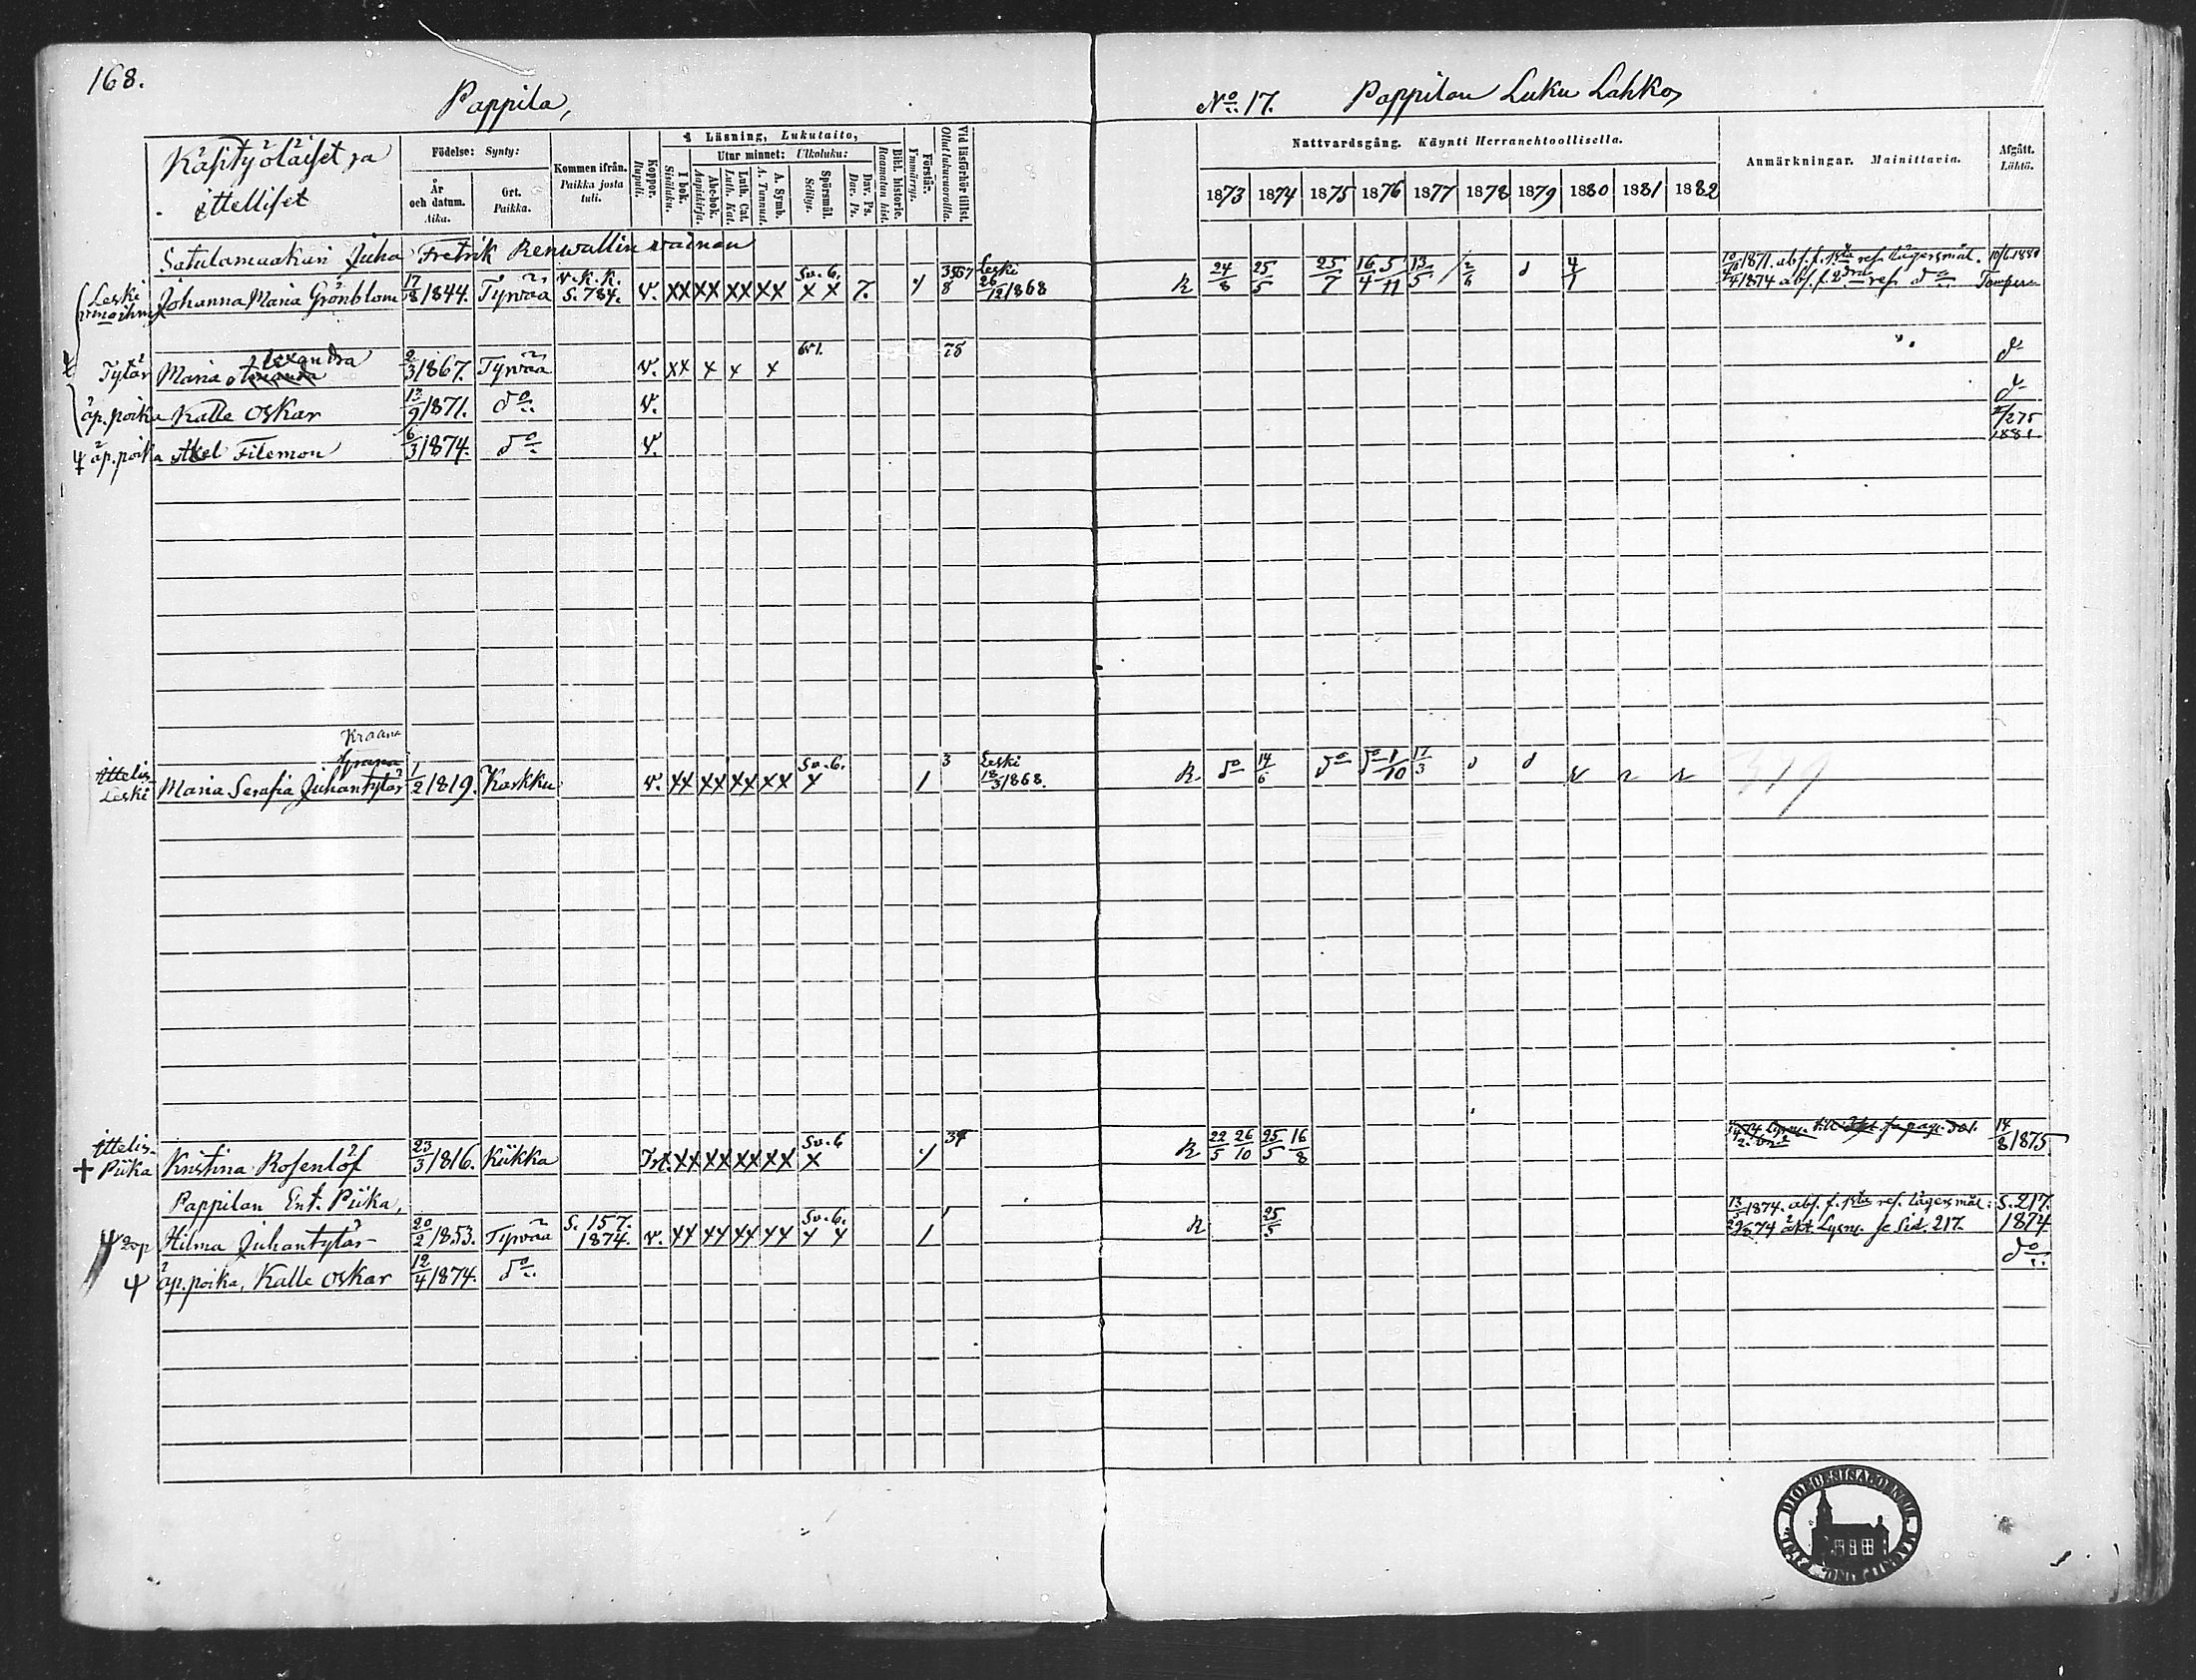 168.
Pappila,
No. 17.
Pappilan Luku Lahko,
Käsityöläiset ja
ittelliset
Födelse: Synty:
År och datum. Aika.
Ort. Paikka.
Kommen ifrån. Paikka josta tuli.
Koppor. Rupuli.
Läsning, Lukutaito,
I bok. Sisäluku.
Utur minnet: Ulkoluku:
Abc-bok. Aapiskirja.
Luth. Cat. Luth. Kat.
A. Symb. A. Tunnust.
Spörsmål. Selitys.
Dav. Ps. Dav. Ps.
Bibl. historie. Raamatun hist.
Förstår. Ymmärrys.
Vid läsförhör tillst. Ollut lukuwuorolla.
Nattvardsgång. Käynti Herranehtoollisella.
1873 1874 1875 1876 1877 1878 1879 1880 1881 1882
Anmärkningar. Mainittavia.
Afgått. Lähtö.
Satulamaakari Juha Fretrik Renwallin wainan
Leski Johanna Maria Grönblom 17/8 1844. Tyrwää v.k.k. S. 784. v. XX XX XX XX Sv. 6. X X 7. Leski 26/12 1868 R 24/8 25/5 25/7 16/4 5/11 13/5 2/6 d 4/1
1871. abs. f. 1sta ref. lägersmål.
1874 abs. f. 2dra ref. do Tamper
Tytär Maria Alexandra Amanda 2/3 1867. Tyrwää v. XX X X X 75 do
äp. poika Kalle Oskar 13/9 1871. do v. do
äp. poika Axel Filemon 6/3 1874. do v. 1881
Kraana
Ittelis Leski Maria Serafia Juhantytär 1/2 1819. Karkku v. XX XX XX XX Sv. 6. X / 3 Leski 18/3 1868. R do 14/6 do do 1/10 17/3 d d
319
Ittelis. + Piika Kristina Rosenlöf 23/3 1816. Kiikka XX XX XX XX Sv. 6 X R 22/5 26/10 25/5 16/8 14/8 1875.
Pappilan Ent. Piika,
Hilma Juhantytär 20/2 1853. Tyrwää S. 157. 1874. v. XX XX XX XX Sv. 6. X X / R 25/5
13/5 1874. abs. f. 1sta ref. lägersmål: S. 217.
Lysn. se Sid. 217. 1874
äp. poika, Kalle Oskar 12/4 1874. do do